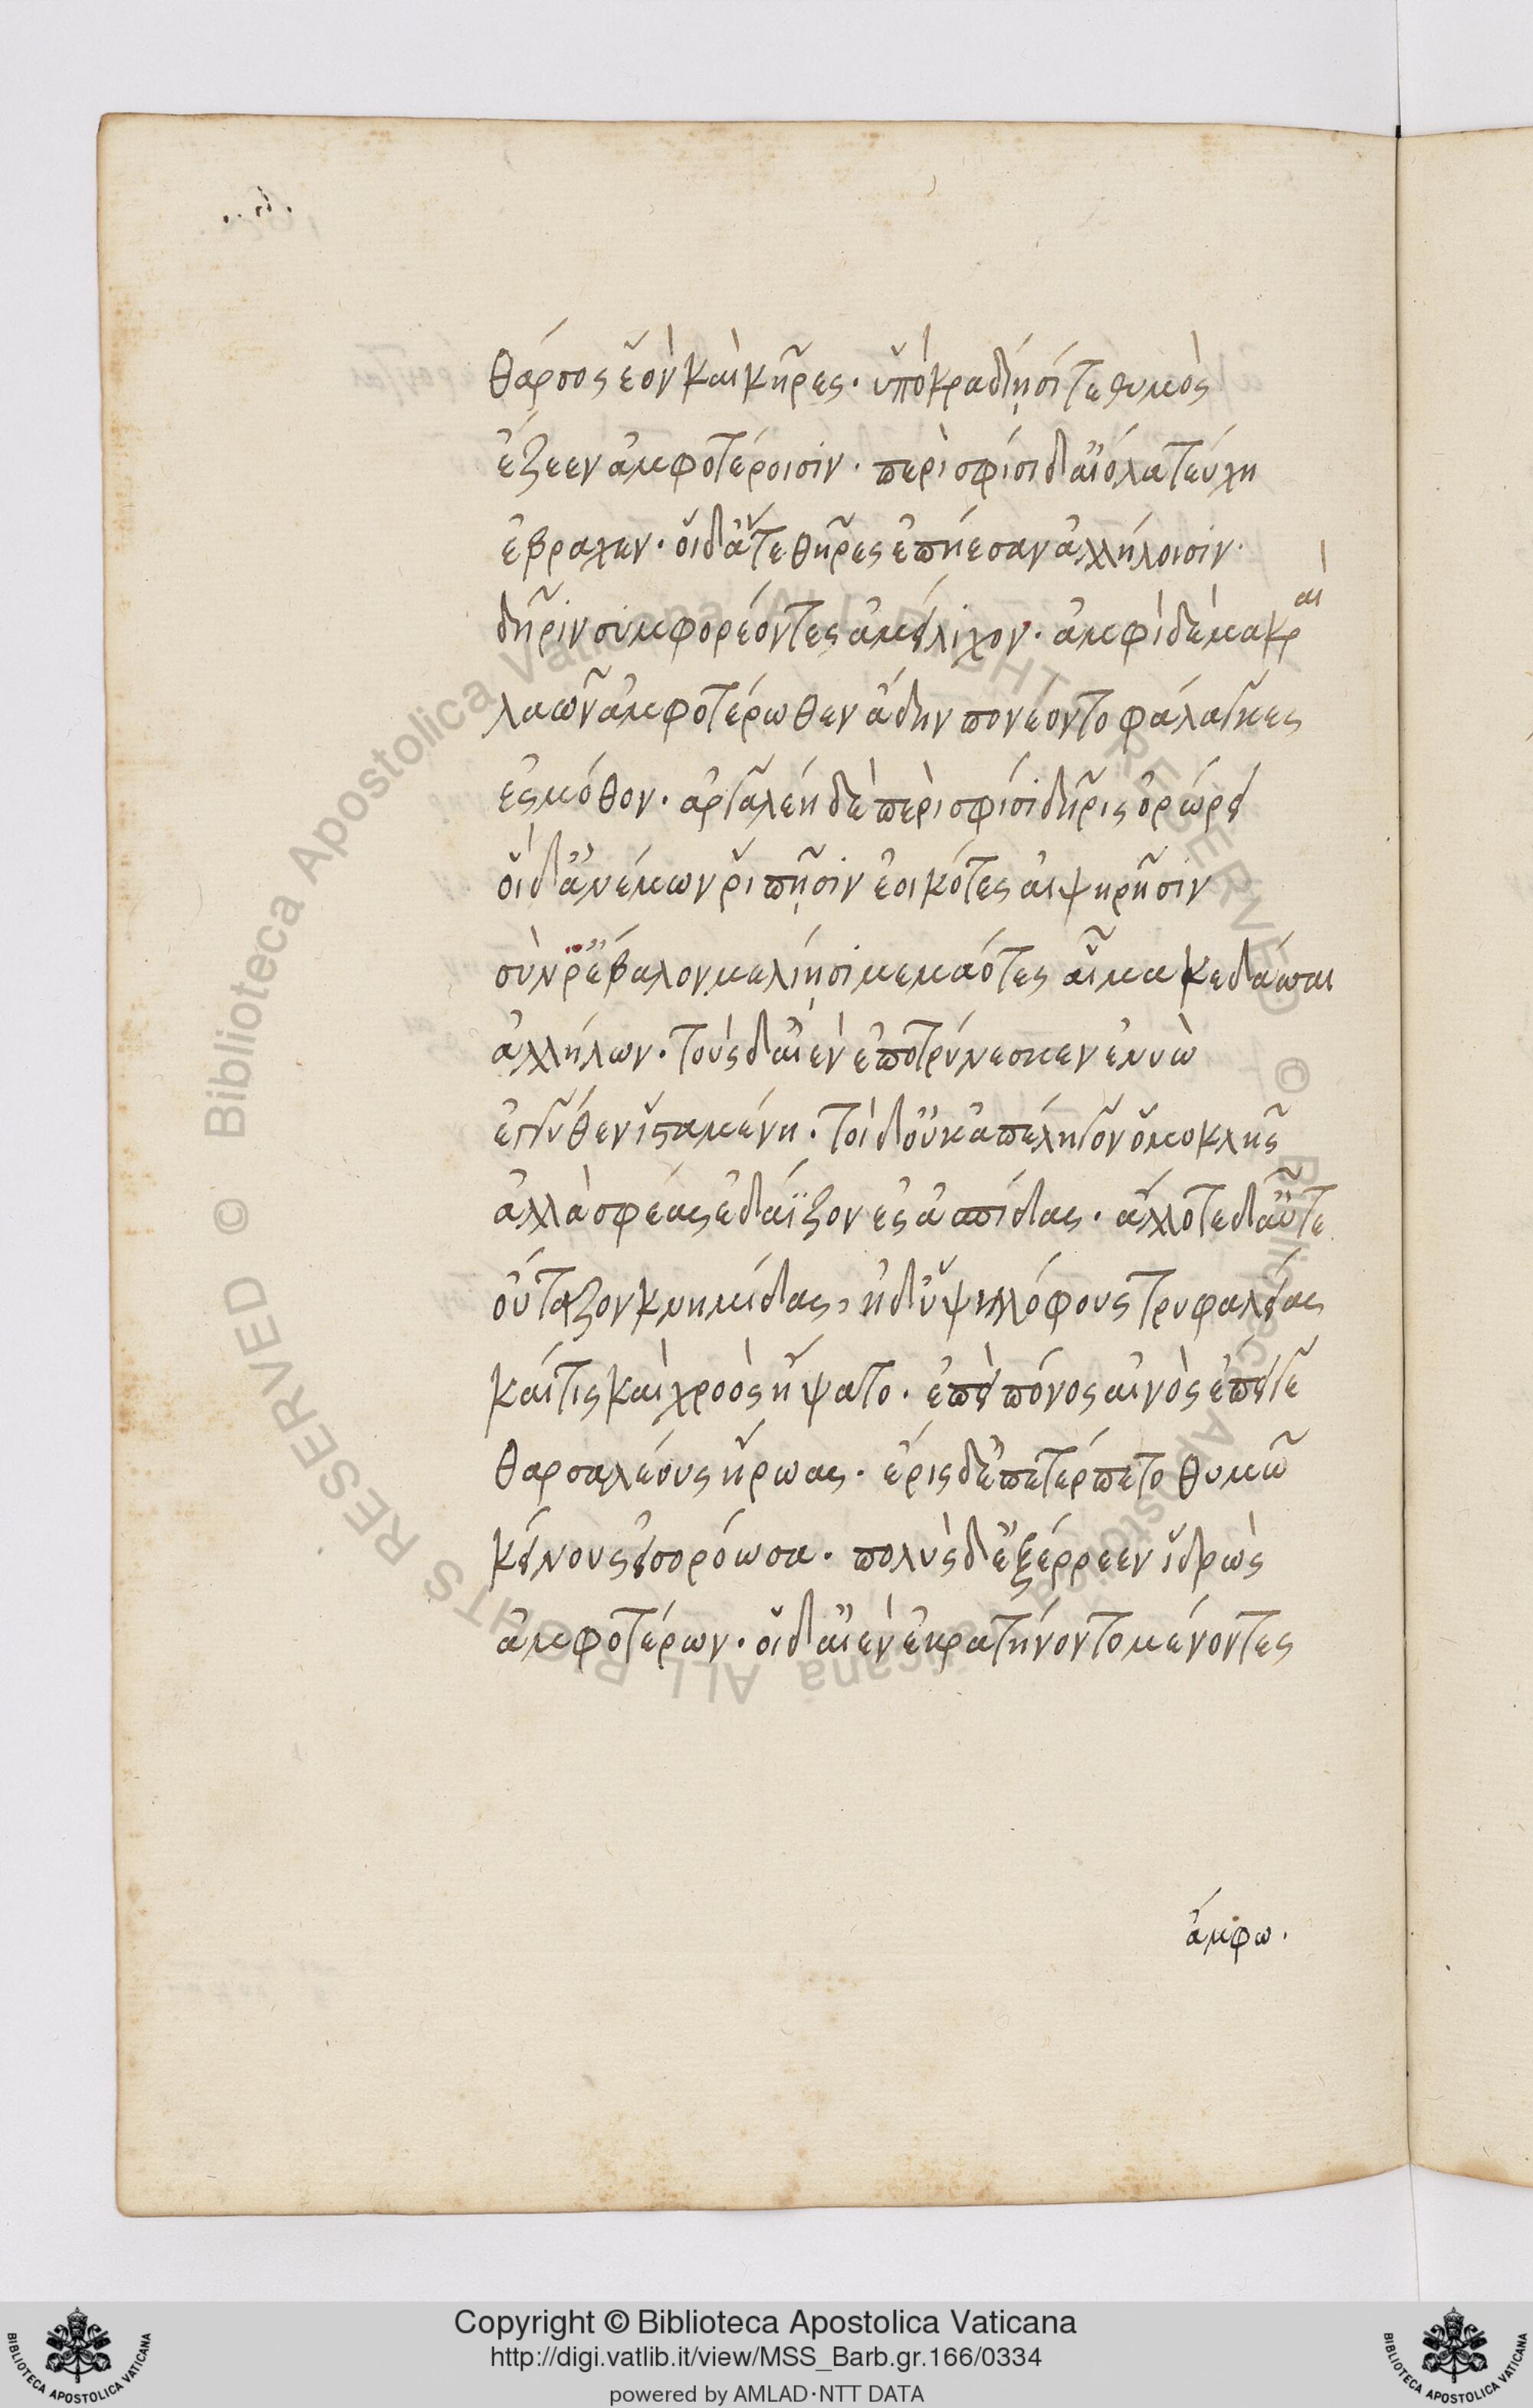 θάρσος ἑὸν καὶ κῆρες · ὑπὸ κραδίῃσί τε θυμὸς
ἔζεεν ἀμφοτέροισιν · περὶ σφίσι δ' αἰόλα τεύχη
ἔβραχεν · οἱ δ' ἅτε θῆρες ἐπήεσαν ἀλλήλοισιν ·
δῆριν συμφορέοντες ἀμείλιχον · ἀμφὶ δὲ μακραὶ
λαῶν ἀμφοτέρωθεν ἄδην πονέοντο φάλαγγες
ἐς μόθον · ἀργαλέη δὲ περὶ σφίσι δῆρις ὀρώρει
οἱ δ' ἀνέμων ῥιπῇσιν ἐοικότες αἰψηρῇσιν
σύν ῥ' ἔβαλον μελίῃσι μεμαότες αἷμα κεδάσσαι
ἀλλήλων · τοὺς δ' αἰὲν ἐποτρύνεσκεν ἐνυὼ
ἐγγύθεν ἱσταμένη · τοὶ δ' οὐκ ἀπέληγον ὁμοκλῆς
ἀλλὰ σφέας ἐδάϊξον ἐς ἀσπίδας · ἄλλοτε δ' αὖτε
οὔταζον κνημίδας, ἠδ' ὑψιλόφους τρυφαλείας
καί τις καὶ χροὸς ἥψατο · ἐπεὶ πόνος αἰνὸς ἔπειγε
θαρσαλέους ἥρωας · ἔρις δ' ἐπετέρπετο θυμῶ
κείνους εἰσορόωσα · πολὺς δ' ἐξέρρεεν ἱδρὼς
ἀμφοτέρων · οἱ δ' αἰὲν ἐκρατύνοντο μένοντες
ἄμφω ·
Copyright © Biblioteca Apostolica Vaticana
http://digi.vatlib.it/view/MSS_Barb.gr.166/0334
powered by AMLAD·NTT DATA